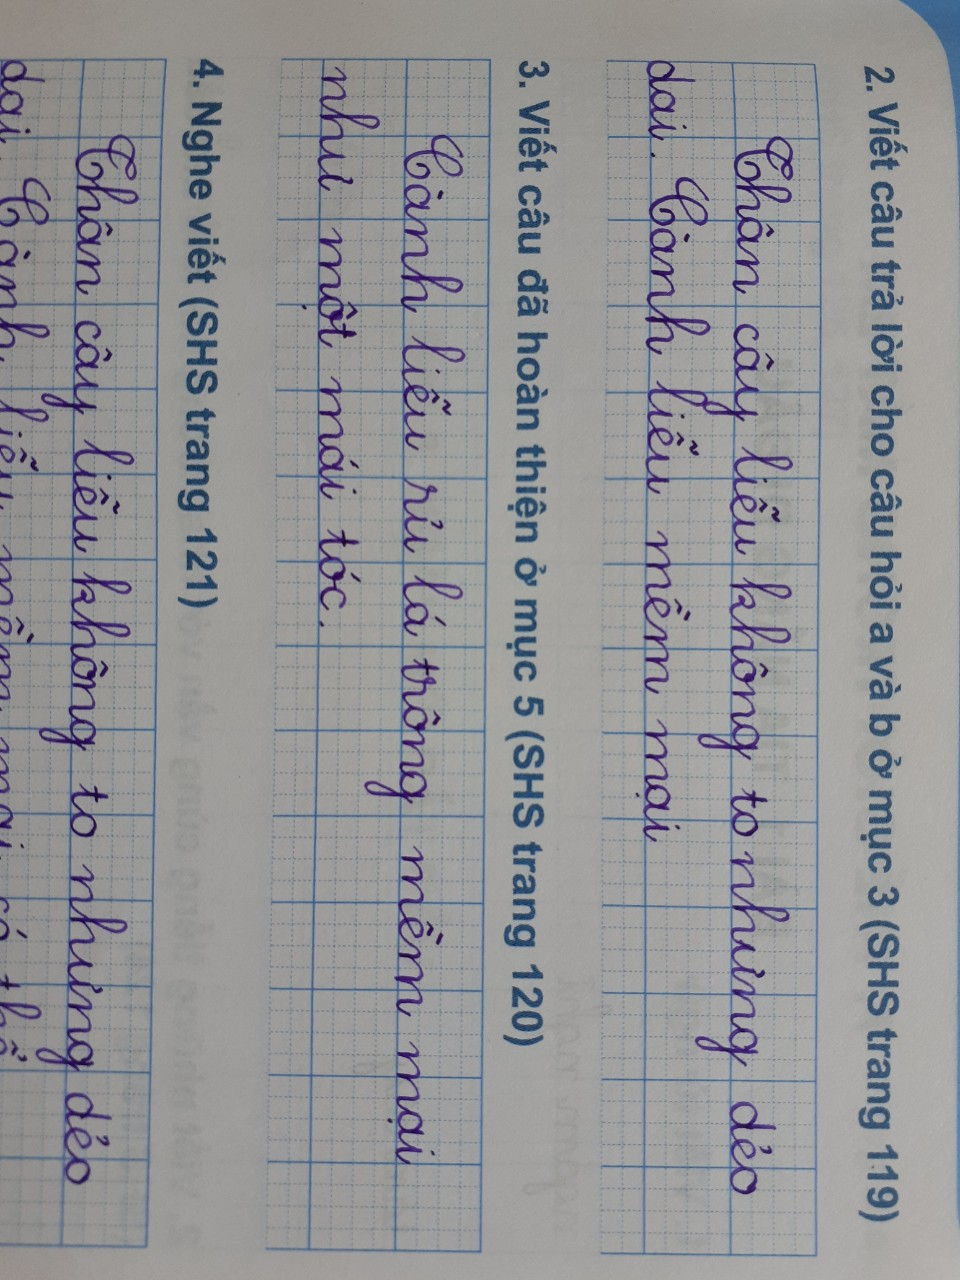 2. Viết câu trả lời cho câu hỏi a và b ở mục 3 (SHS trang 119)
Thân cây liễu không to nhưng dẻo
dai. Cành liễu mềm mại
3. Viết câu đã hoàn thiện ở mục 5 (SHS trang 120)
Cành liễu rủ lá trông mềm mại
như một mái tóc.
4. Nghe viết (SHS trang 121)
Thân cây liễu không to nhưng dẻo
dai. Cành liễu mềm mại có thể